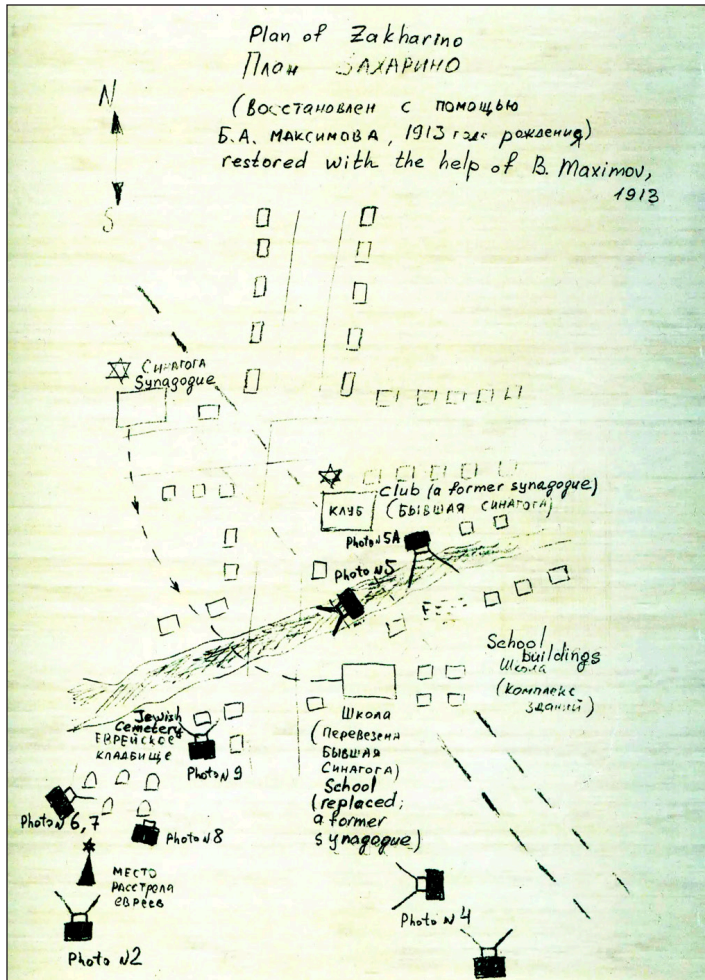 Plan of Zakharino
План ЗАХАРИНО
(Восстановлен с помощью
Б.А. МАКСИМОВА, 1913 года рождения)
restored with the help of B. Maximov,
1913
N
S
Синагога
Synagogue
club (a former synagogue)
КЛУБ
(БЫВШАЯ СИНАГОГА)
Photo N 5A
Photo N 5
School
buildings
Школа
(комплекс
зданий)
Jewish
Cemetery
ЕВРЕЙСКОЕ
КЛАДБИЩЕ
Photo N 9
Школа
(Перевезена
БЫВШАЯ
СИНАГОГА)
School
(replaced;
a former
synagogue)
Photo N 6,7
Photo N 8
МЕСТО
РАССТРЕЛА
ЕВРЕЕВ
Photo N 2
Photo N 4